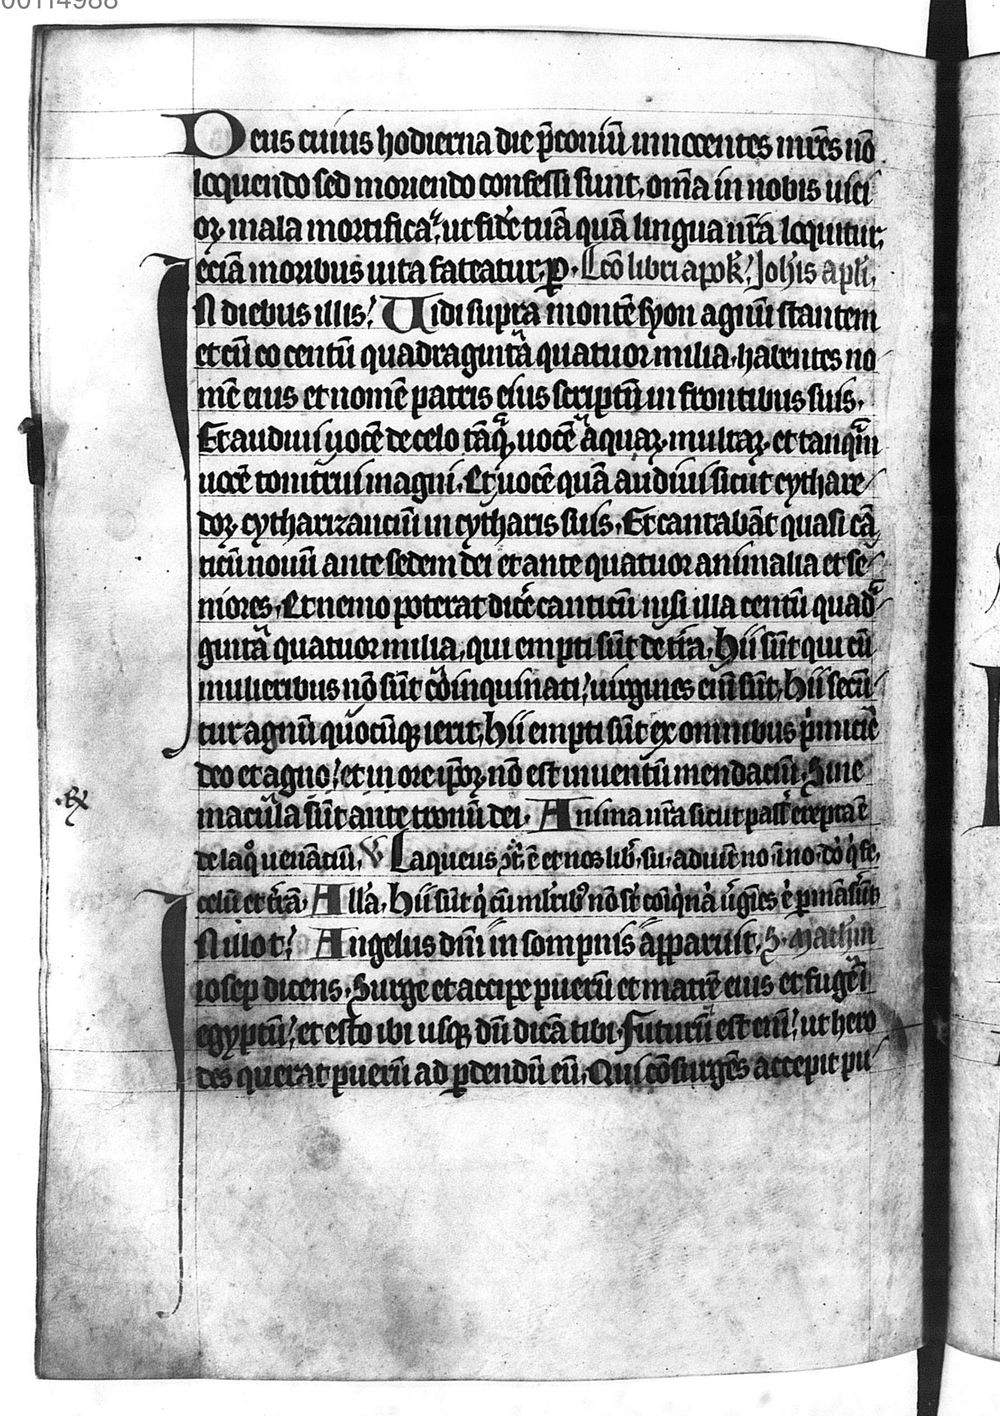 00114988
Deus cuius hodierna die p̄coniū innocentes mr̄es nō
loquendo sed moriendo confessi sunt, om̄ia in nobis uici
oꝝ mala mortifica, ut fidē tuā quā lingua nr̄a loquitur,
eciā moribus uita fateatur, ꝑ. Lcō libri apok̄. Joh̄is apl̄i.
IN diebus illis. Uidi supra montē syon agnū stantem
et cū eo centū quadraginta quatuor milia habentes no
mē eius et nomē patris eius scriptū in frontibus suis.
Et audiui uocē de celo tāqͣ uocē aquaꝝ multaꝝ et tanqͣm
uocē tonitrui magni. Et uocē quā audiui sicut cythare
doꝝ cytharizanciū in cytharis suis. Et cantabāt quasi cā
ticū nouū ante sedem dei et ante quatuor animalia et se
niores. Et nemo poterat dicē canticū nisi illa centū quadͣ
gintͣa quatuor milia, qui empti sūt de tr̄a. Hii sūt qui cū
mulieribus nō sūt coinquinati, uirgines eni sūt. Hii secū
tur agnū quocūqꝫ ierit, hii empti sūt ex omnibus pͥmicie
deo et agno, et in ore ip̄oꝝ nō est inuentū mendaciū. Sine
macula sūt ante tronū dei. Anima nr̄a sicut pass̄ erepta ē
de laqͦ uenāciū, V Laqueus ē et nos lib̄ su adiut no ī no dō qͥ fē
celū et tr̄a. All̄a. Hii sūt qͥ cū ml̄ribꝰ nō st̄ coīqͥnati ꝑmāsūt
IN illo t̄. Angelus dn̄i in sompnis apparuit S. Mathm
iosep dicens. Surge et accipe puerū et matrē eius et fuge ī
egyptū, et esto ibi usqꝫ dū dicā tibi. Futurū est eni, ut hero
des querat puerū ad ꝑdendū eū. Qui cōsurgēs accepit pu